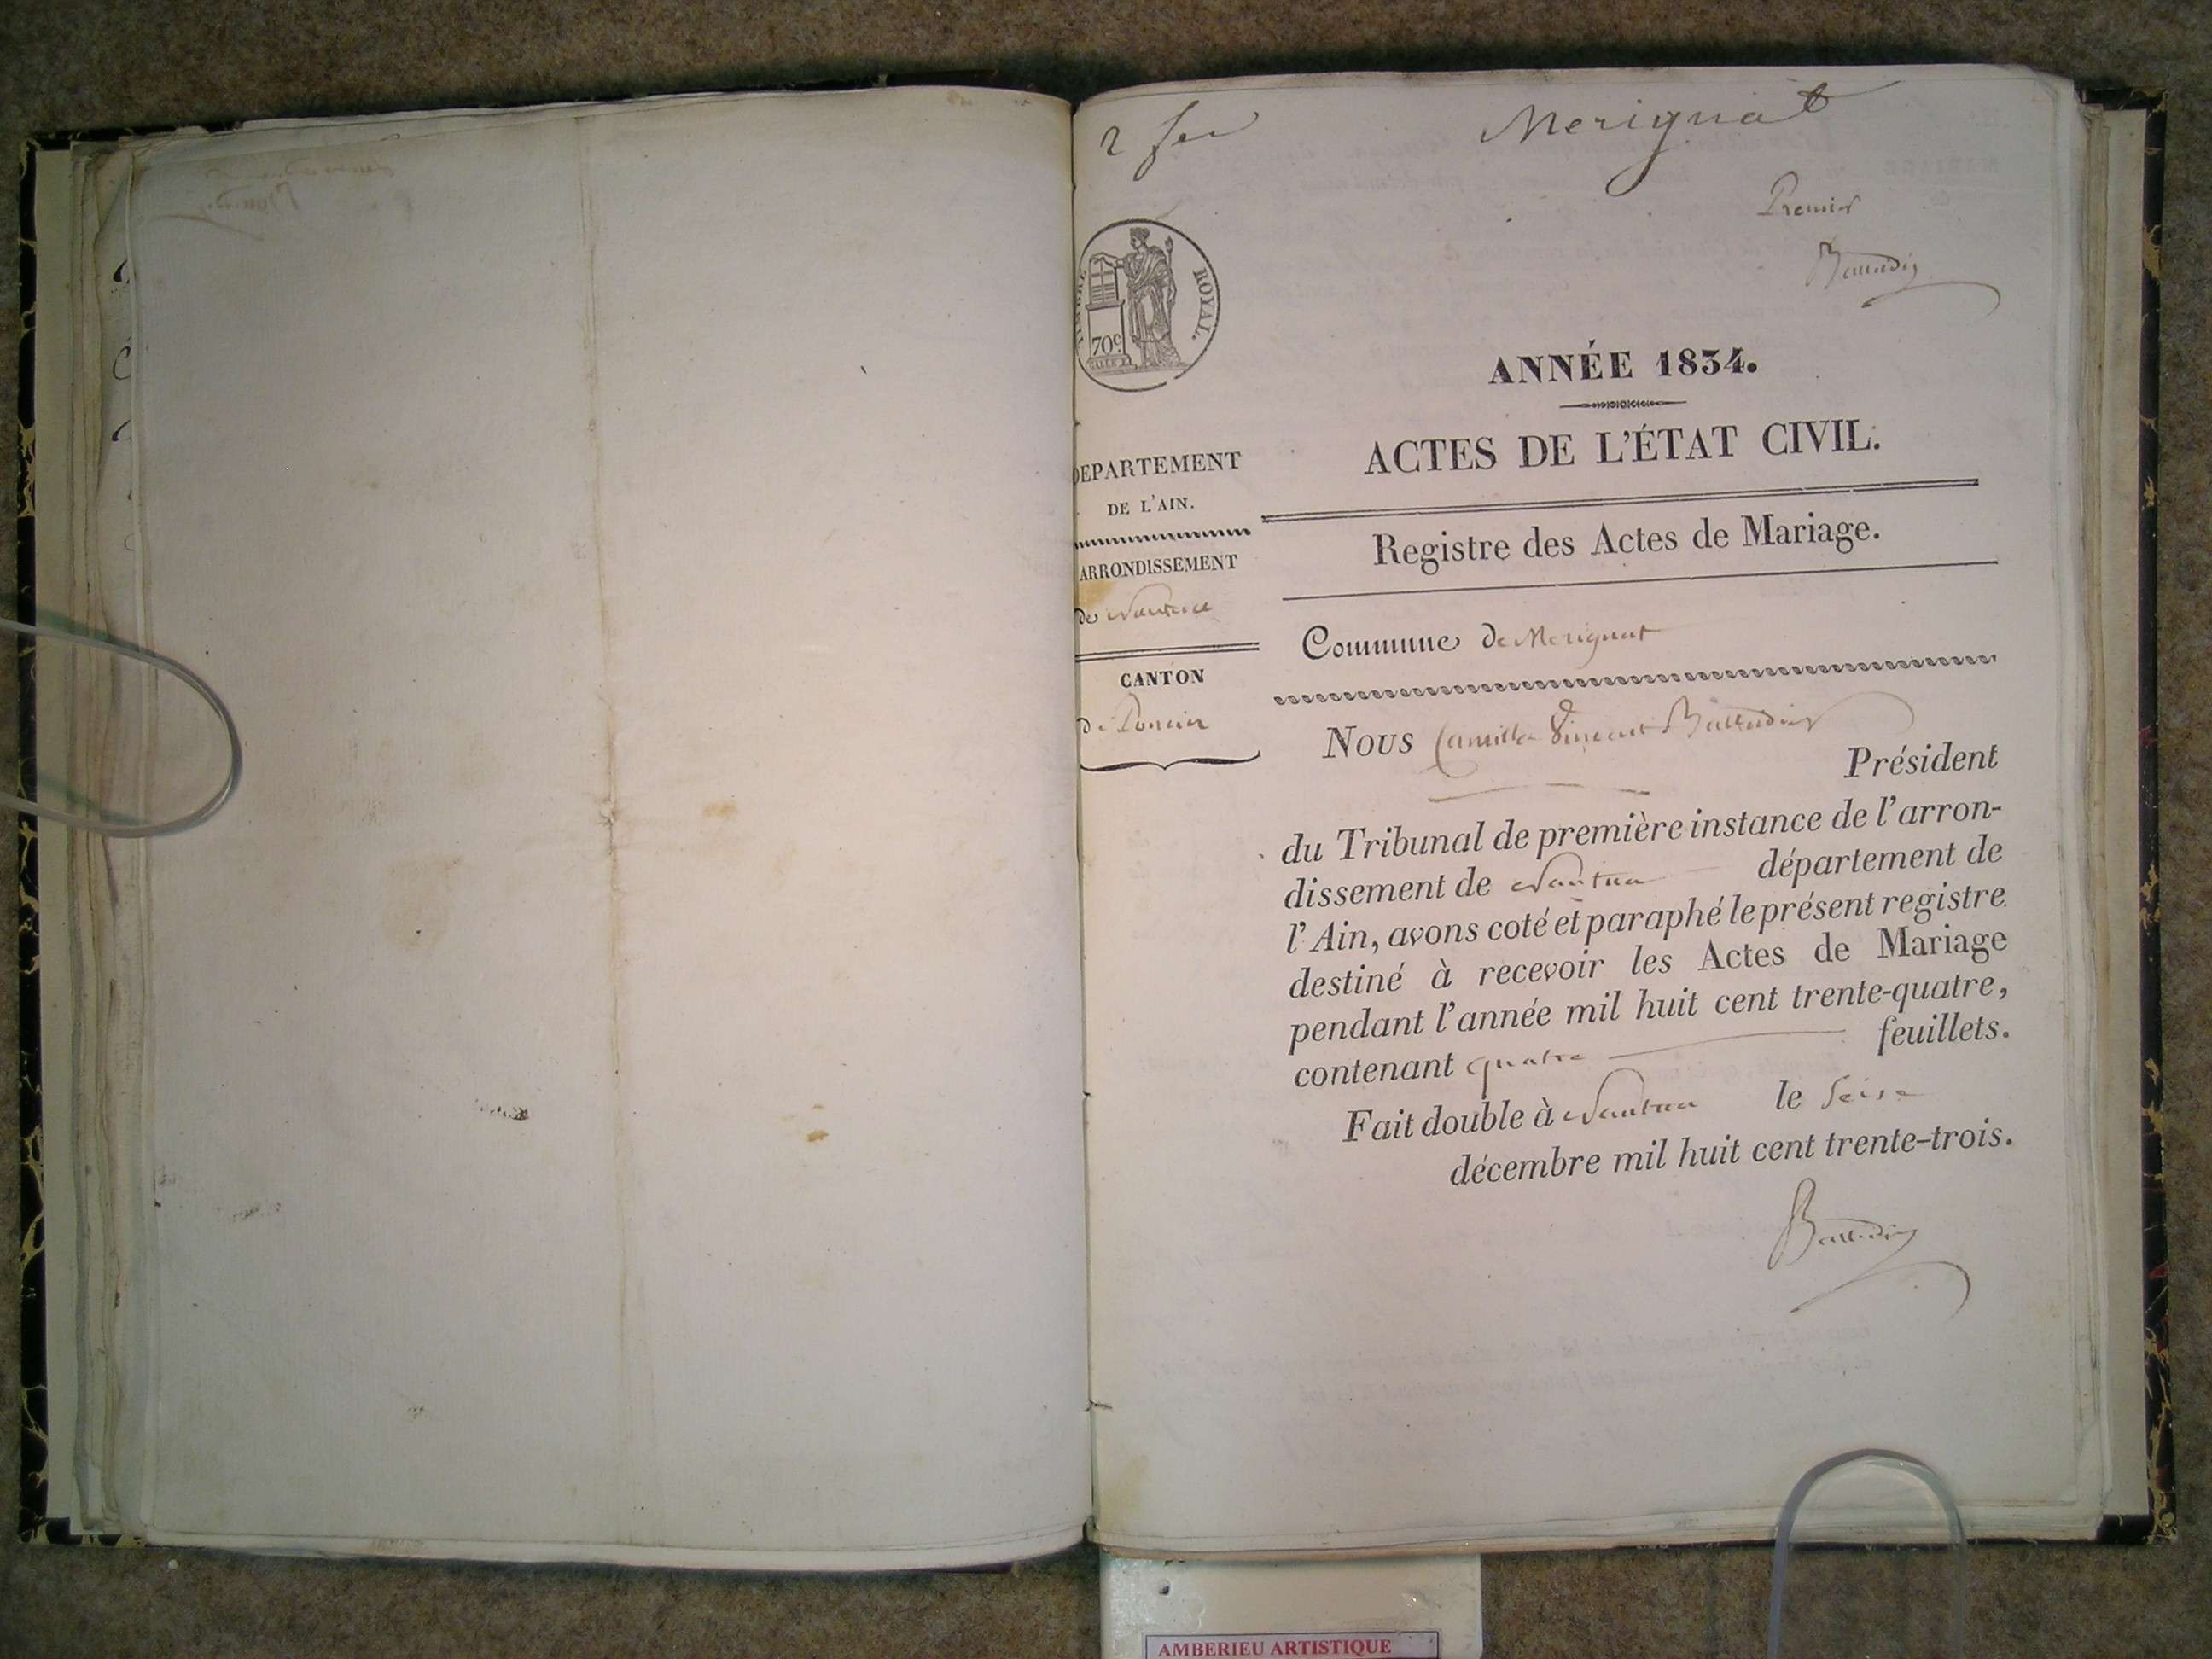 2
Merignat
Premier
TIMBRE ROYAL.
70c
ANNÉE 1834.
ACTES DE L'ÉTAT CIVIL.
DEPARTEMENT
DE L'AIN.
ARRONDISSEMENT
de Nantua
CANTON
de Poncin
Registre des Actes de Mariage.
Commune de Merignat
Nous Camille Vincent Baudin
Président
du Tribunal de première instance de l'arron-
dissement de Nantua département de
l'Ain, avons coté et paraphé le présent registre
destiné à recevoir les Actes de Mariage
pendant l'année mil huit cent trente-quatre,
contenant quatre feuillets.
Fait double à Nantua le seise
décembre mil huit cent trente-trois.
AMBERIEU ARTISTIQUE